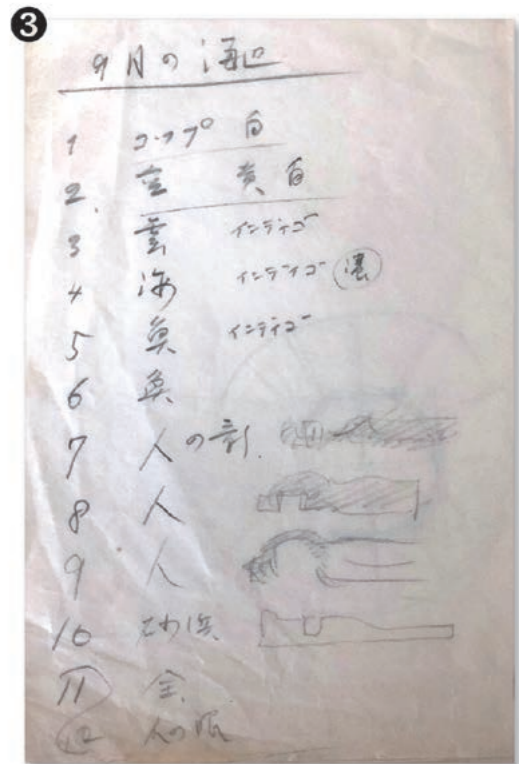 ❸
9月の海辺
1 コップ 白
2. 空 黄白
3 雲 インディゴ
4 海 インディゴ 濃
5 魚 インディゴ
6 魚
7 人の影
8 人
9 人
10 砂浜
11 金
12 人の服